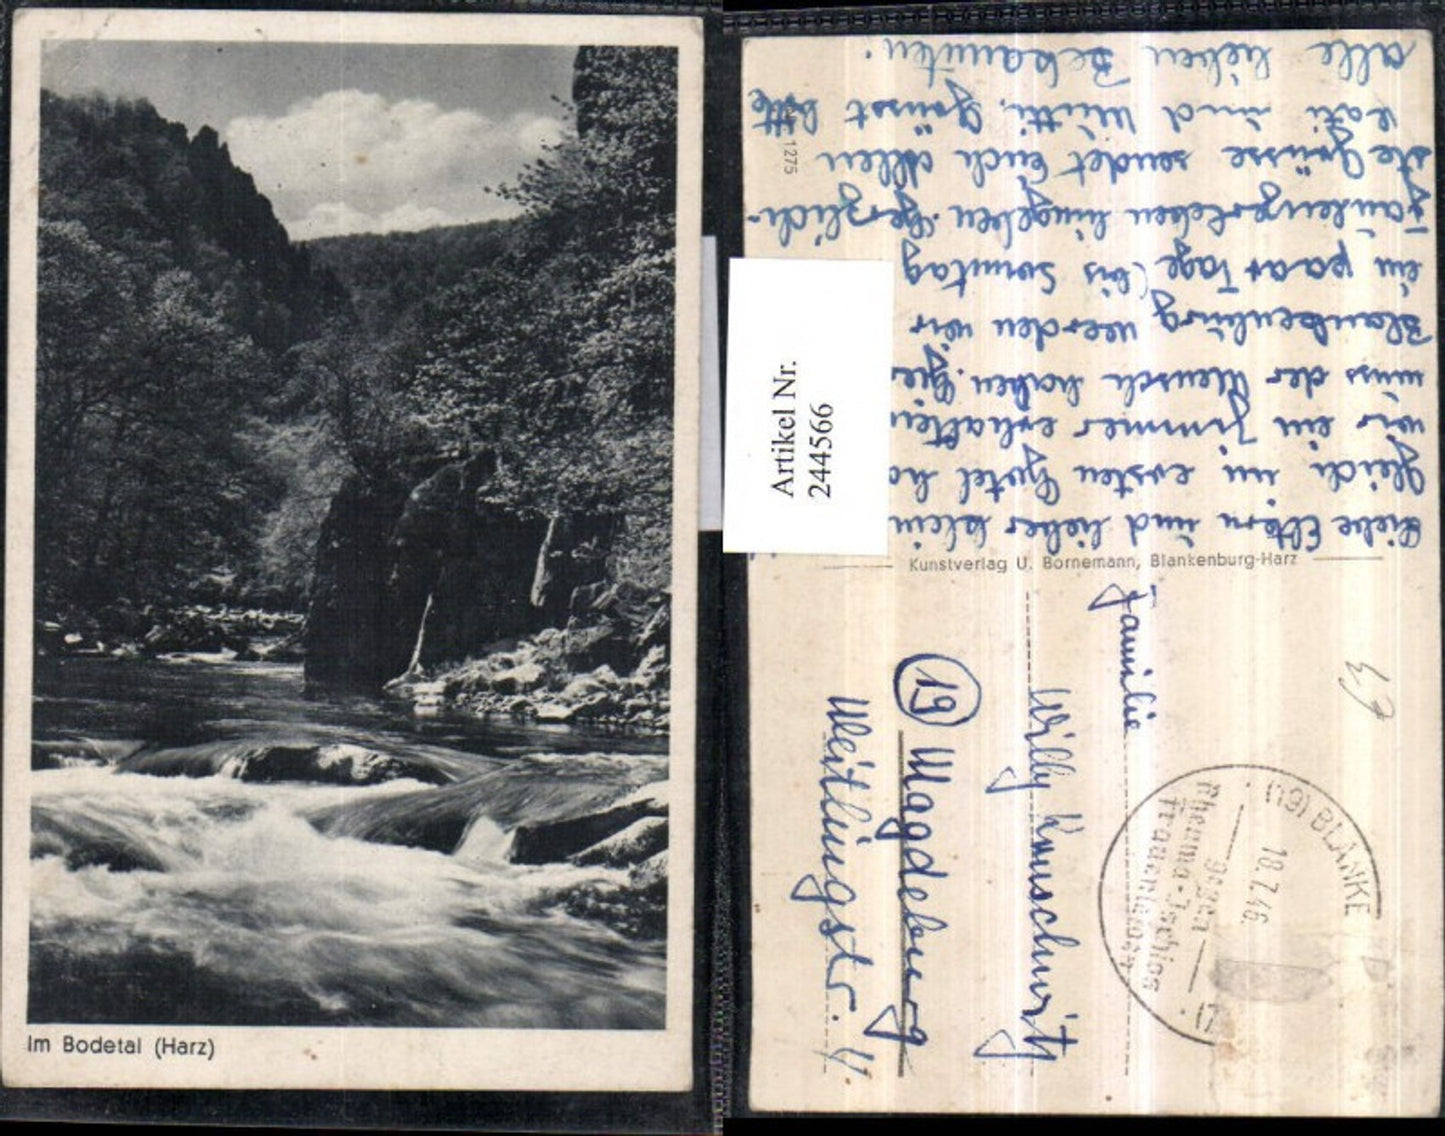 Im Bodetal (Harz)
Artikel Nr.
244566
1275
Liebe Eltern und lieber klein
Gleich im ersten Hotel ha
wir ein Zimmer erhalten
muss der Mensch haben. Hie
Blankenburg werden wir
ein paar Tage (bis Sonntag
hingeben. Herzlich-
ste Grüsse sendet Euch Allen
und Mutti. Grüsst bitte
alle lieben Bekannten.
Kunstverlag U. Bornemann, Blankenburg-Harz
Familie
Willy
(19) Magdeburg
Weitlingstr.
(19) BLANKE
18.7.46
Rheuma-Ischias
gegen
49